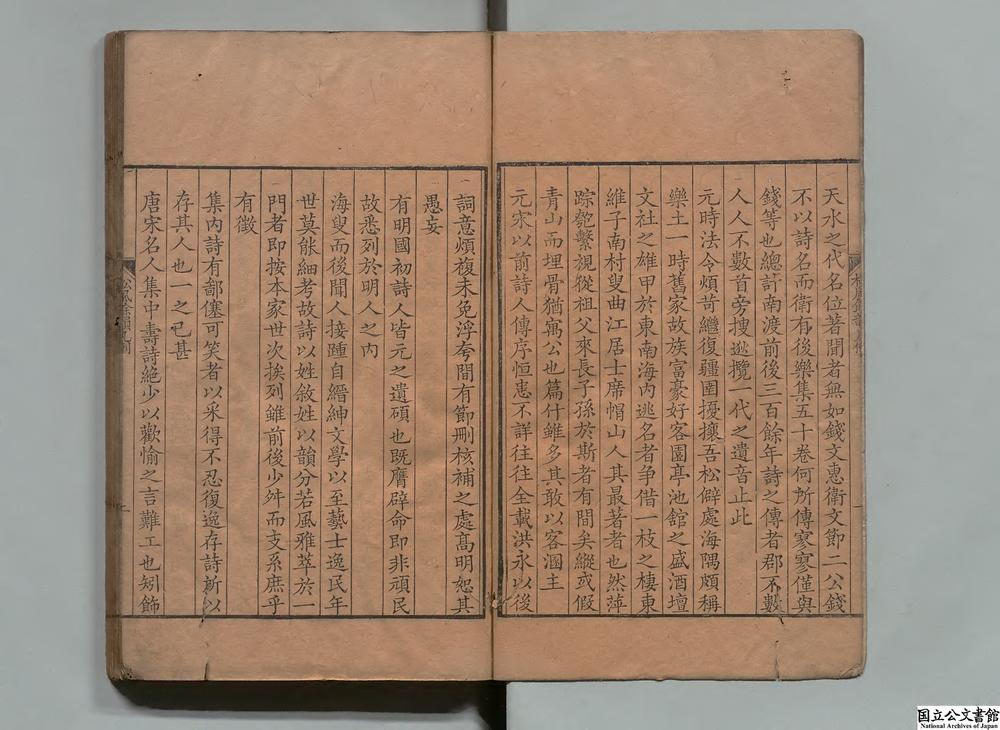 天水之代名位著聞者無如錢文惠衛文節二公錢
不以詩名而衛有後樂集五十卷何所傳寥寥僅與
錢等也總計南渡前後三百餘年詩之傳者郡不數
人人不數首旁搜遐攬一代之遺音止此
元時法令煩苛繼復疆圉擾攘吾松僻處海隅頗稱
樂土一時舊家故族富豪好客園亭池舘之盛酒壇
文社之雄甲於東南海內逃名者爭借一枝之棲東
維子南村叟曲江居士席帽山人其最著者也然萍
踪匏繫視從祖父來長子孫於斯者有間矣縱或假
青山而埋骨猶寓公也篇什雖多其敢以客溷主
元宋以前詩人傳序恒患不詳徃徃全載洪永以後
詞意煩複未免浮夸間有節刪核補之處高明恕其
愚妄
有明國初詩人皆元之遺碩也既膺辟命即非頑民
故悉列於明人之內
海叟而後聞人接踵自縉紳文學以至藝士逸民年
世莫能細考故詩以姓敘姓以韻分若風雅萃於一
門者即按本家世次挨列雖前後少舛而支系庶乎
有徵
集內詩有鄙僿可笑者以采得不忍復逸存詩所以
存其人也一之已甚
唐宋名人集中壽詩絕少以歡愉之言難工也矧飾
国立公文書館
National Archives of Japan